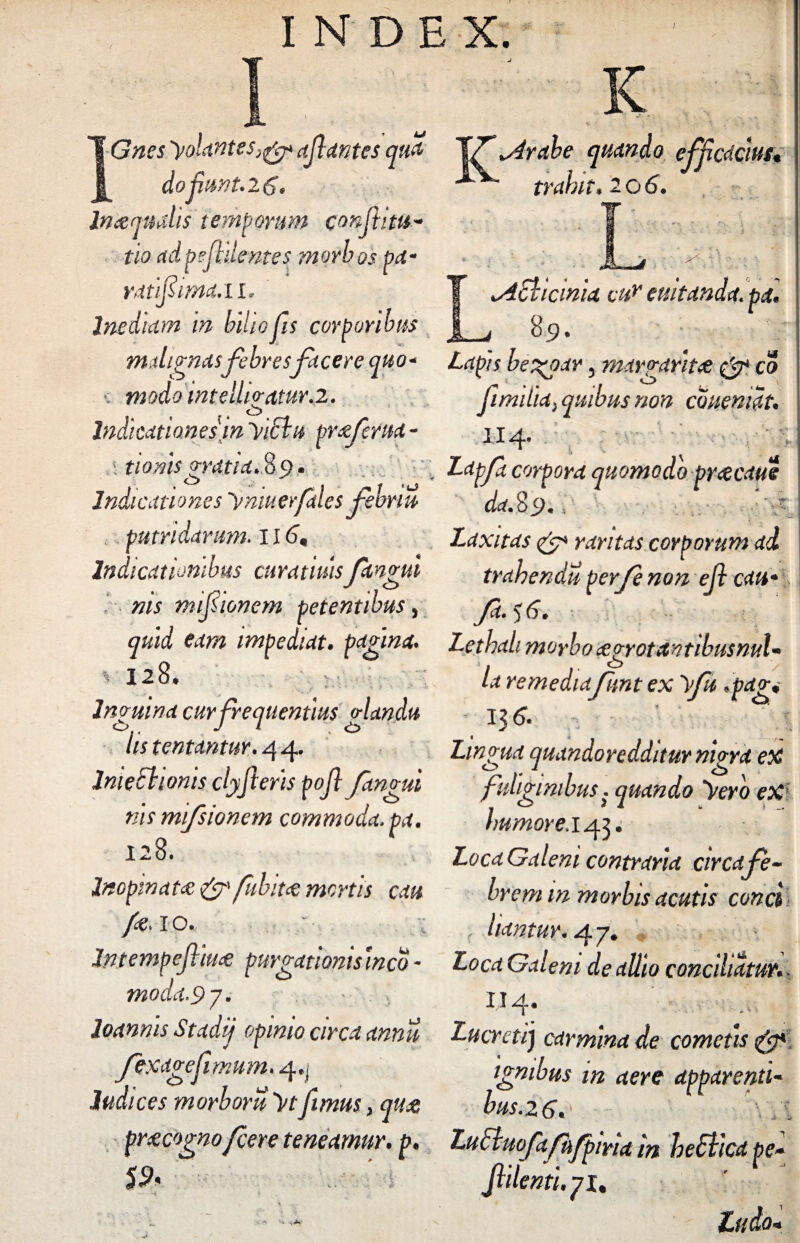 INDEX.
I
IGnes volantes, & astantes quã
do fiunt. 26.
Inæqualis temporum constitu-
tio ad pestilentes morbos pa-
ratißima. 11.
Inediam in biliosis corporibus
malignas febres facere quo-
modo intelligatur. 2.
Indicationes in victu præserua-
tionis gratia. 89.
Indicationes vniuersales febriũ
putridarum. 116.
Indicationibus curatiuis sangui
nis mißionem petentibus,
quid eam impediat. pagina.
128.
Inguina cur frequentius glandu
lis tentantur. 44.
Iniectionis clysteris post sangui
nis missionem commoda. pa.
128.
Inopinatæ & subitæ mortis cau
sæ. 10.
Intempestiuæ purgationis inco-
moda. 97.
Ioannis Stadij opinio circa annũ
sexagesimum. 4.
Iudices morborũ vt simus, quæ
præcognoscere teneamur. p.
59.
K
KArabe quando efficacius.
trahit. 206.
L
LActicinia cur euitanda. pa.
89.
Lapis bezoar, margaritæ & cõ
similia, quibus non cõueniãt.
114.
Lapsa corpora quomodo præcauẽ
da. 89.
Laxitas & raritas corporum ad
trahendũ per se non est cau-
sa. 56.
Lethali morbo ægrotantibus nul-
la remedia sunt ex vsu. pag.
136.
Lingua quando redditur nigra ex
fuliginibus: quando vero ex
humore. 143.
Loca Galeni contraria circa fe-
brem in morbis acutis conci
liantur. 47.
Loca Galeni de allio conciliãtur.
114.
Lucretij carmina de cometis &
ignibus in aere apparenti-
bus. 26.
Luctuosa suspiria in hectica pe-
stilenti. 71.
Ludo-